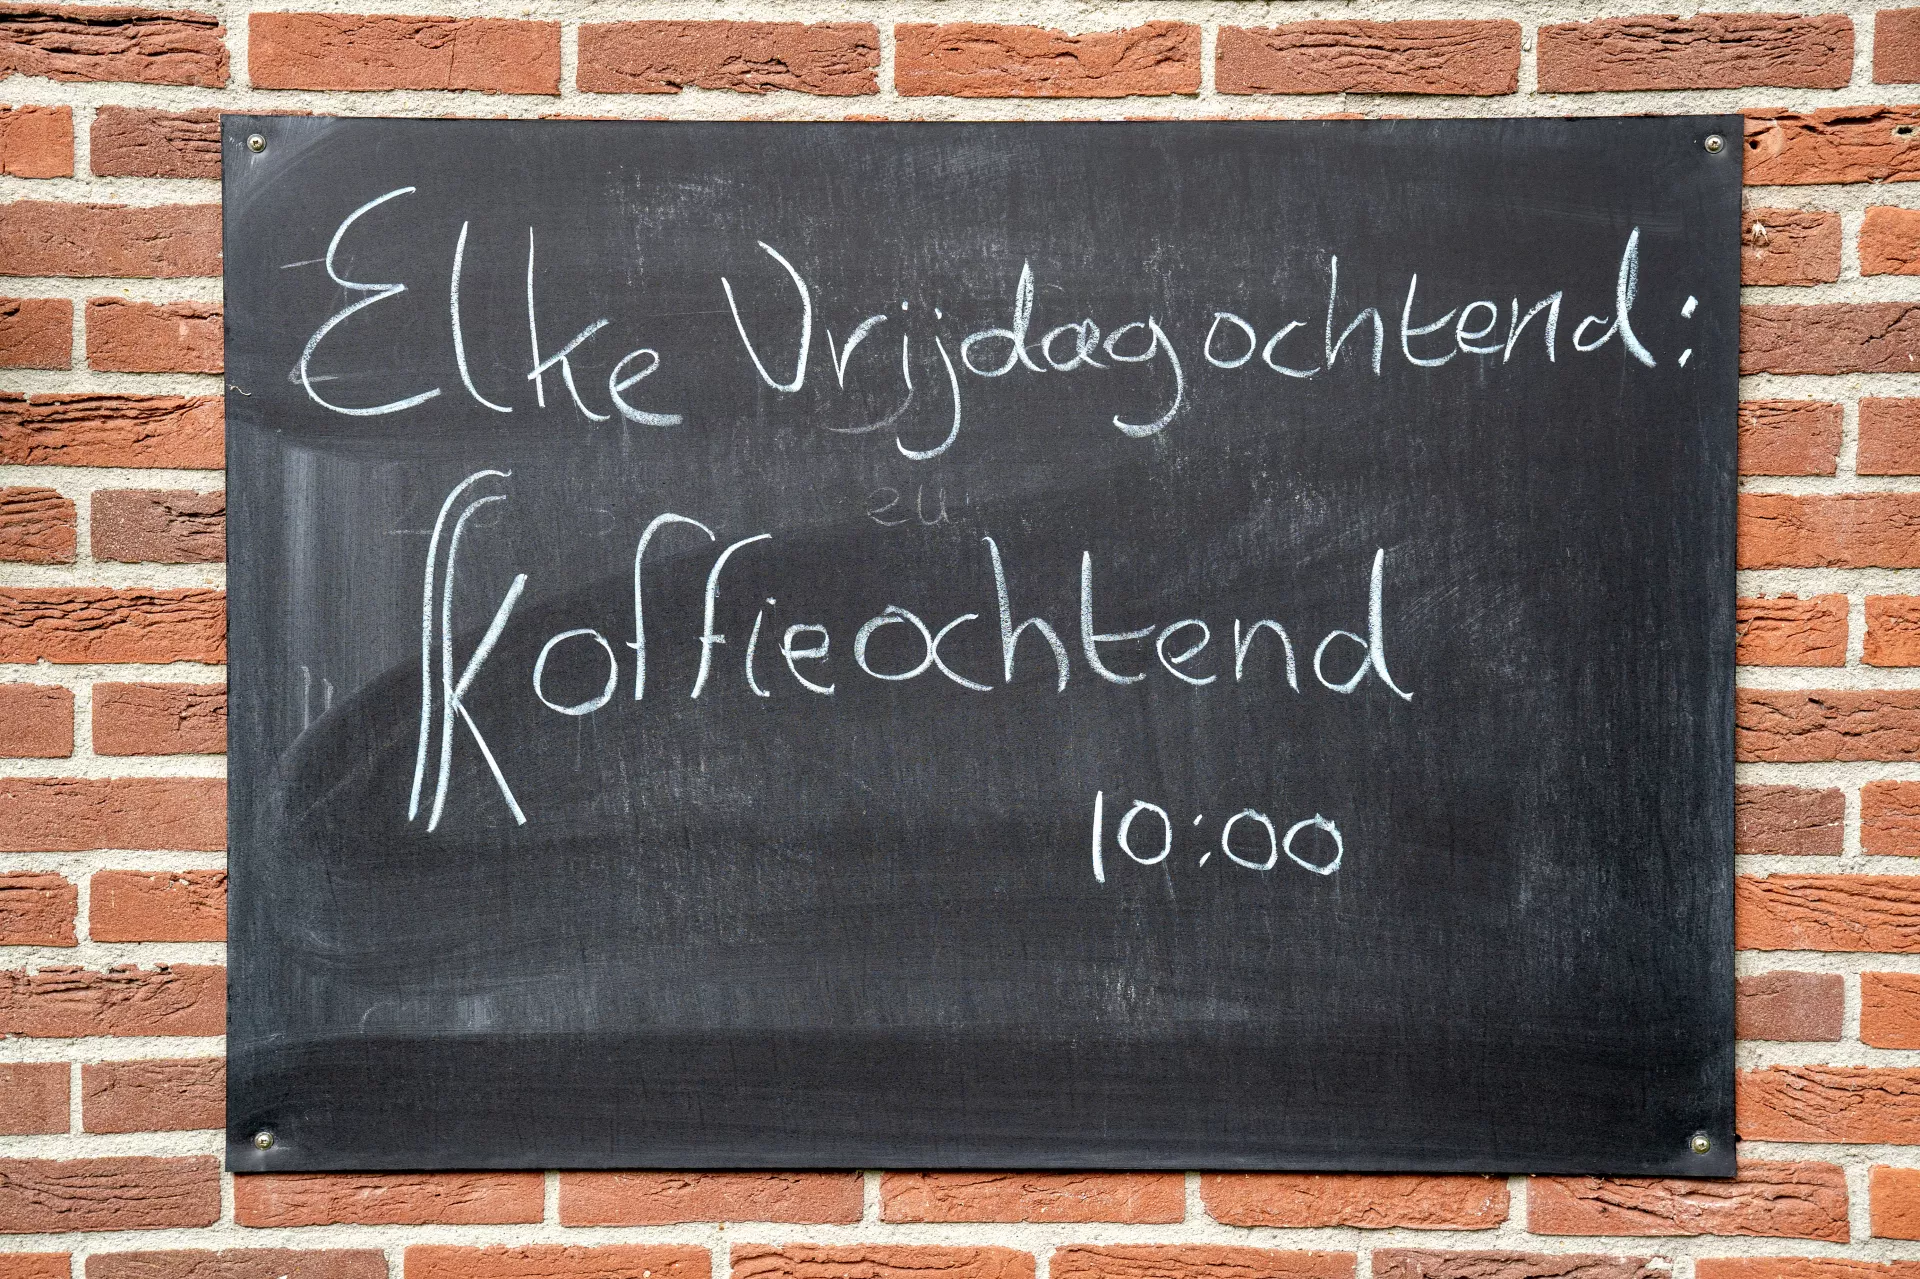 Elke Vrijdagochtend:
Koffieochtend
10:00